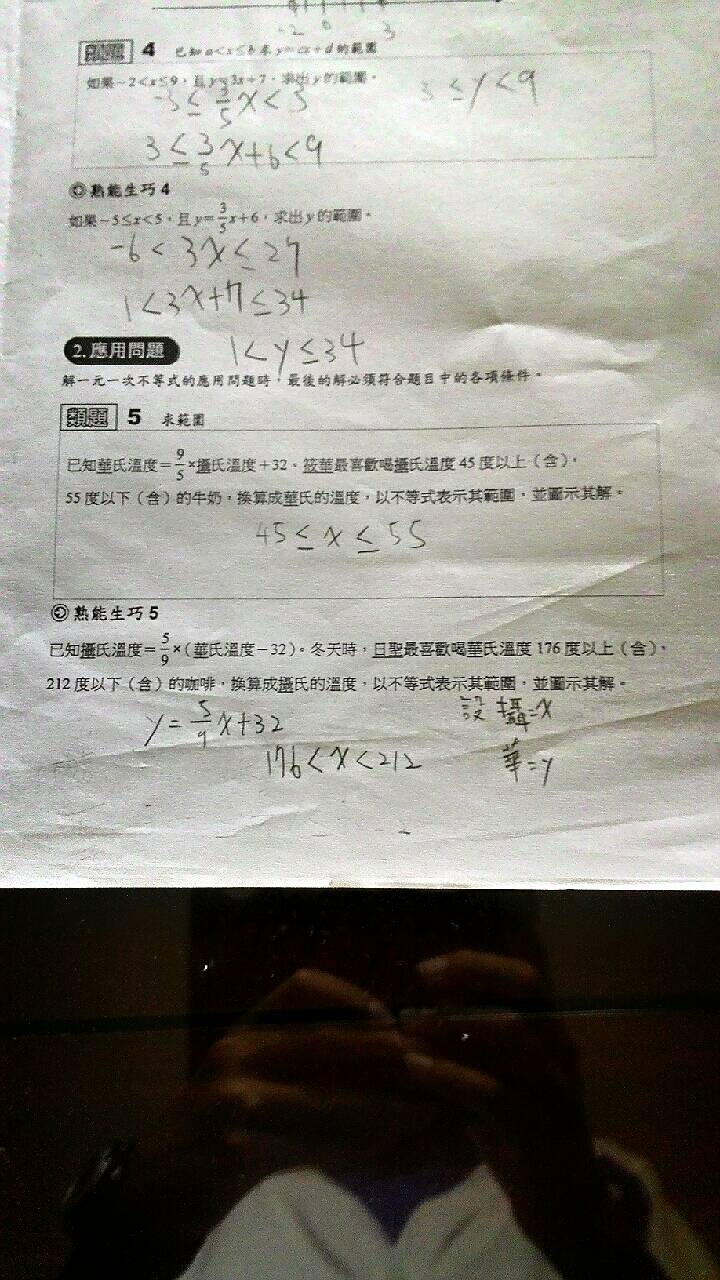 -2 0 3
類題 4 已知 a<x≤b 求 y=cx+d 的範圍
如果-2<x≤9，且 y=3x+7，求出 y 的範圍。
-3≤3/5x<3 3≤y<9
3≤3/5x+6<9
熟能生巧 4
如果-5≤x<5，且 y=3/5x+6，求出 y 的範圍。
-6<3x≤27
1<3x+7≤34
1<y≤34
2. 應用問題
解一元一次不等式的應用問題時，最後的解必須符合題目中的各項條件。
類題 5 求範圍
已知華氏溫度=9/5×攝氏溫度+32，筱華最喜歡喝攝氏溫度 45 度以上（含），
55 度以下（含）的牛奶，換算成華氏的溫度，以不等式表示其範圍，並圖示其解。
45≤x≤55
熟能生巧 5
已知攝氏溫度=5/9×（華氏溫度-32）。冬天時，日聖最喜歡喝華氏溫度 176 度以上（含），
212 度以下（含）的咖啡，換算成攝氏的溫度，以不等式表示其範圍，並圖示其解。
y=5/9x+32 設 攝=x
176<x<212 華=y